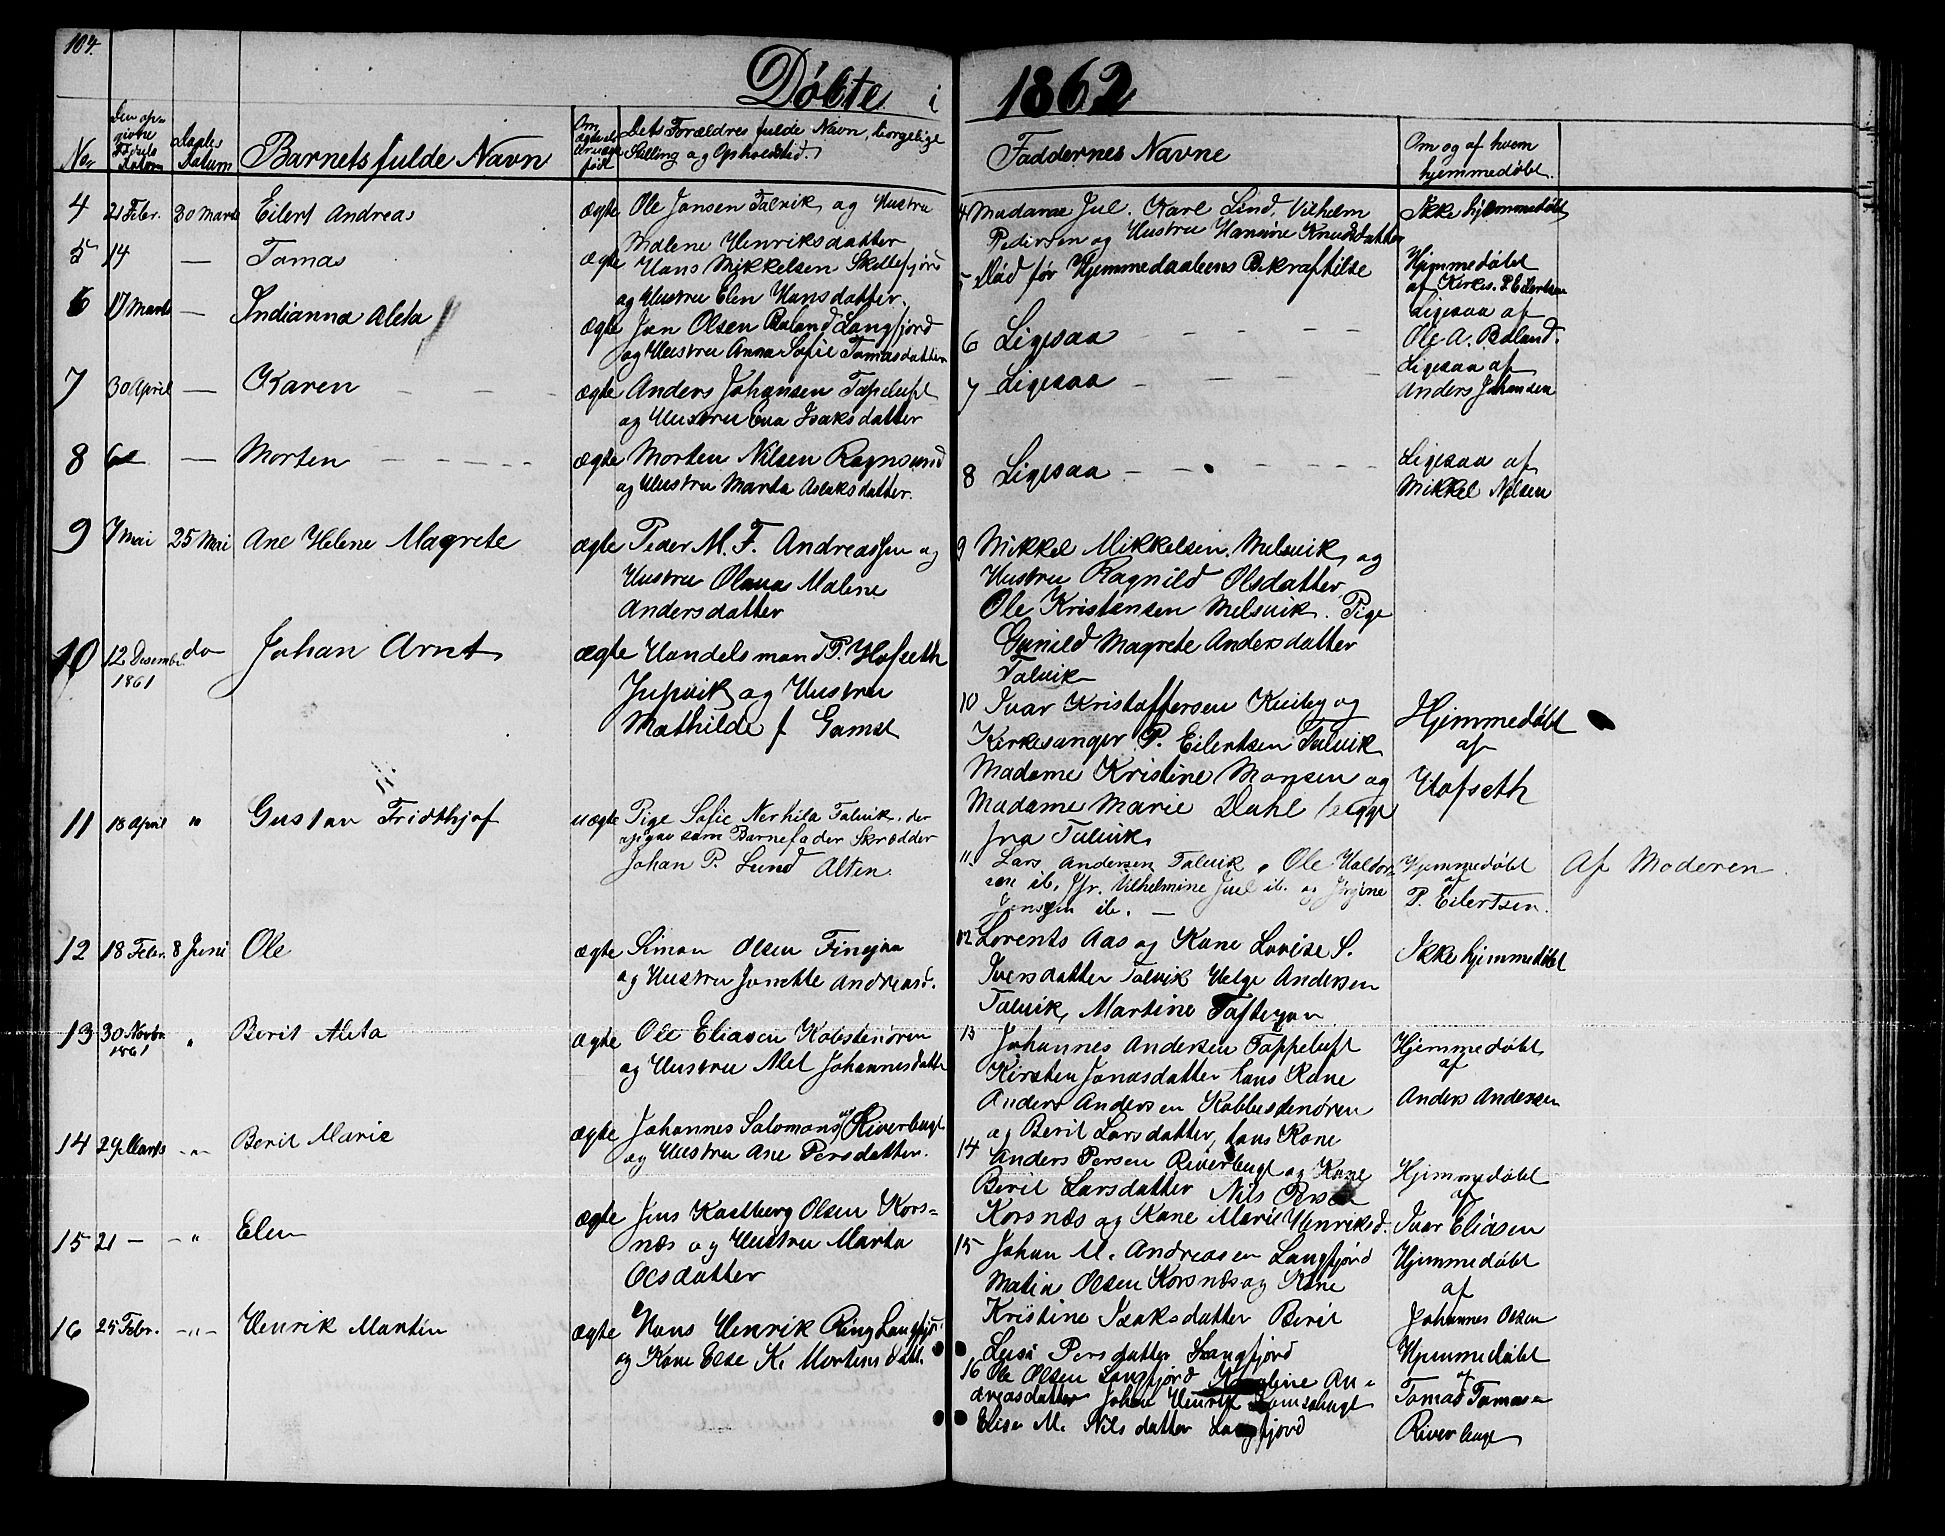 104.
Döbte i 1862
No
Den op-
givne
Fødsels
Datum
Daabs
Datum
Barnets fulde Navn
Om
ægte el.
uægte
født
Dets Forældres fulde Navn, borgelige
Stilling og Opholdsted.
Faddernes Navne
Om og af hvem
hjemmedöbt.
4 21 Febr. 30 Marts Eilert Andreas ægte Ole Jansen Talvik og Hustru
Malene Henriksdatter
4 Madame Jul. Karl Lind. Vilhelm
Pedersen og Hustru Hansine Knudsdatter
Ikke hjemmedöbt
5 14 — Tomas ægte Hans Mikkelsen Skillefjord
og Hustru Elen Hansdatter.
5 Död før Hjemmedaabens Bekræftelse
Hjemmedöbt
af Kirkes. P. Eilertsen
6 17 Marts — Indianna Aleta ægte Jon Olsen Boland Langfjord
og Hustru Anna Sofie Tomasdatter
6 Ligesaa
Ligesaa af
Ole A. Boland.
7 30 April — Karen ægte Anders Johansen Tapeluft
og Hustru Eva Isaksdatter
7 Ligesaa
Ligesaa af
Anders Johansen
8 — Morten ægte Morten Nilsen Rognsund
og Hustru Marta Aslaksdatter.
8 Ligesaa
Ligesaa af
Mikkel Nilsen
9 7 Mai 25 Mai Ane Helene Magrete ægte Peder M. F. Andreassen og
Hustru Olava Malene
Andersdatter
9 Mikkel Mikkelsen Melsvik og
Hustru Ragnild Olsdatter
Ole Kristensen Melsvik. Pige
Gunild Magrete Andersdatter
Talvik
10 12 Desembr. 1861 do Johan Arnt ægte Handelsmand P. Hofseth
Jupvik og Hustru
Mathilde f Gamst
10 Ivar Kristoffersen Kviby og
Kirkesanger P. Eilertsen Talvik
Madame Kristine Monsen og
Madame Marie Dahl begge
fra Talvik
Hjemmedöbt
af
Hofseth
11 18 April " Gustav Fridthjof uægte Pige Sofie Nerhila Talvik, der
opgav som Barnefader Skrædder
Johan P. Lund Alten.
11. Lars Andersen Talvik, Ole Haldor
sen ib. Jfr. Vilhelmine Juel ib. og
Jensen ib. —
Hjemmedöbt
af
P. Eilertsen.
Af Moderen.
12 18 Febr. 8 Juni Ole ægte Simon Olsen
og Hustru Janette Andreasd.
12 Lorents Aas og Kone Lovise S.
Iversdatter Talvik Helge Andersen
Talvik, Martine
Ikke hjemmedöbt
13 30 Novbr. 1861 " Berit Aleta ægte Ole Eliasen Kobestenören
og Hustru Alet Johannesdatter
13 Johannes Andersen Tappeluft
Kirsten Jonasdatter hans Kone
Anders Andersen Kobbestenören
og Berit Larsdatter, hans Kone
Hjemmedöbt
af
Anders Andersen
14 29 Marts -"- Berit Marie ægte Johannes Salomons. Riverbugt
og Hustru Ane Persdatter.
14 Anders Persen Riverbugt og Kone
Berit Larsdatter Nils Persen
Korsnæs og Kone Marie Henriksd.
Hjemmedöbt
af
Ivar Eliasen
15 21 — -"- Elen ægte Jens Kaalberg Olsen Kors=
næs og Hustru Marta
Olsdatter
15 Johan M. Andreasen Langfjord
Matis Olsen Korsnæs og Kone
Kristine Isaksdatter Berit
Lusi Persdatter Langfjord
Hjemmedöbt
af
Johannes Olsen
16 25 Febr. -"- Henrik Martin ægte Hans Henrik Ring Langfjor
og Kone Else K. Mortensdatt.
16 Ole Olsen Langfjord An-
dreasdatter Johan Henrik
Elise M. Nilsdatter Langfjord
Hjemmedöbt
af
Tomas Tomasen
Riverbugt